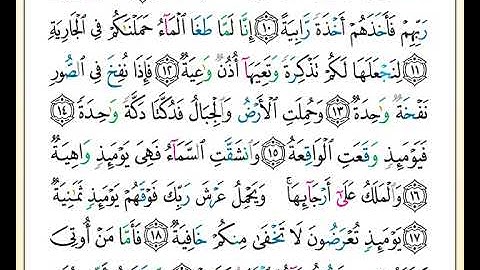 رَبِّهِمْ فَأَخَذَهُمْ أَخْذَةً رَّابِيَةً ۝١٠ إِنَّا لَمَّا طَغَا ٱلْمَآءُ حَمَلْنَٰكُمْ فِى ٱلْجَارِيَةِ
۝١١ لِنَجْعَلَهَا لَكُمْ تَذْكِرَةً وَتَعِيَهَآ أُذُنٌ وَٰعِيَةٌ ۝١٢ فَإِذَا نُفِخَ فِى ٱلصُّورِ
نَفْخَةٌ وَٰحِدَةٌ ۝١٣ وَحُمِلَتِ ٱلْأَرْضُ وَٱلْجِبَالُ فَدُكَّتَا دَكَّةً وَٰحِدَةً ۝١٤
فَيَوْمَئِذٍ وَقَعَتِ ٱلْوَاقِعَةُ ۝١٥ وَٱنشَقَّتِ ٱلسَّمَآءُ فَهِىَ يَوْمَئِذٍ وَاهِيَةٌ
۝١٦ وَٱلْمَلَكُ عَلَىٰٓ أَرْجَآئِهَا ۚ وَيَحْمِلُ عَرْشَ رَبِّكَ فَوْقَهُمْ يَوْمَئِذٍ ثَمَٰنِيَةٌ
۝١٧ يَوْمَئِذٍ تُعْرَضُونَ لَا تَخْفَىٰ مِنكُمْ خَافِيَةٌ ۝١٨ فَأَمَّا مَنْ أُوتِىَ